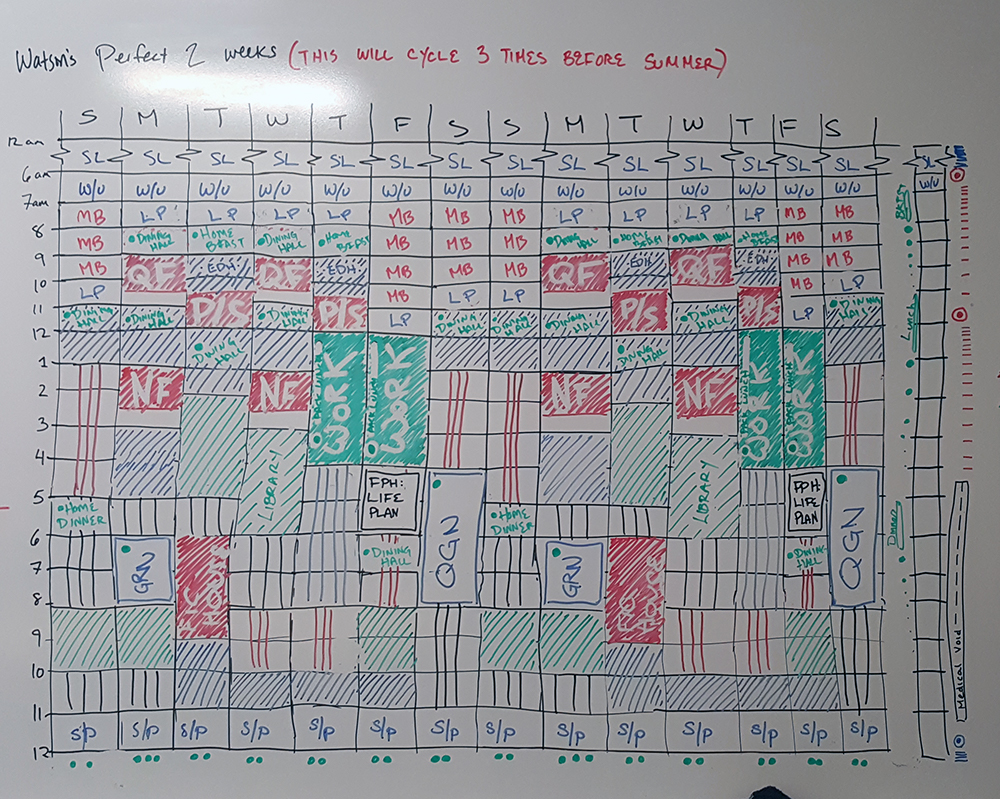 Watson's Perfect 2 weeks (THIS WILL CYCLE 3 TIMES BEFORE SUMMER)
S M T W T F S S M T W T F S
12 am
SL SL SL SL SL SL SL SL SL SL SL SL SL SL SL
6 am
W/U W/U W/U W/U W/U W/U W/U W/U W/U W/U W/U W/U W/U W/U W/U
7am
MB LP LP LP LP MB MB MB LP LP LP LP MB MB
8
MB DINING HALL HOME BFAST DINING HALL HOME BFAST MB MB MB DINING HALL HOME BFAST DINING HALL HOME BFAST MB MB
9
MB QF EDH QF EDH MB MB MB QF EDH QF EDH MB MB
10
LP P/S P/S MB LP LP P/S P/S MB LP
11
DINING HALL DINING HALL DINING HALL LP DINING HALL DINING HALL DINING HALL DINING HALL LP DINING HALL
Lunch
12
DINING HALL DINING HALL
PACK LUNCH WORK PACK LUNCH WORK PACK LUNCH WORK PACK LUNCH WORK
1
NF NF NF NF
2
3
LIBRARY LIBRARY
4
FPH: LIFE PLAN QGN FPH: LIFE PLAN QGN
5
HOME DINNER HOME DINNER
Dinner
6
GRN DINING HALL GRN DINING HALL
HOUSE
7
8
9
10
11
S/P S/P S/P S/P S/P S/P S/P S/P S/P S/P S/P S/P S/P S/P
12
Medical Void